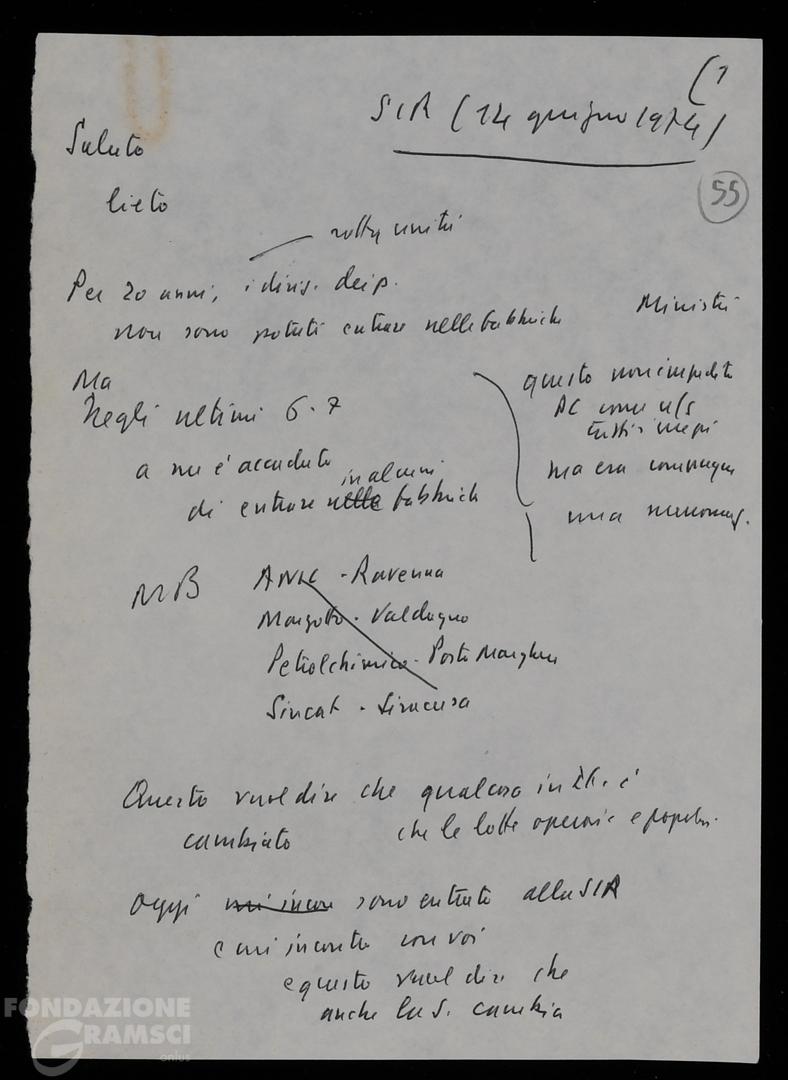 (1
SIR (14 giugno 1974)
55
Saluto
lieto
rottq unità
Per 20 anni, i dirig. dei p.
non sono potuti entrare nelle fabbriche
Ministri
Ma
Negli ultimi 6-7
a me è accaduto
in alcuni
di entrare nelle fabbriche
questo non impedito
PC come u/s
tutti i
ma era comunque
una menomaz.
NB ANIC - Ravenna
Marzotto - Valdagno
Petrolchimico - Porto Marghera
Sincat - Siracusa
Questo vuol dire che qualcosa in It. è
cambiato che le lotte operaie e popolari
Oggi mi incon sono entrato alla SIR
e mi incontro con voi
e questo vuol dire che
anche la S. cambia
FONDAZIONE
GRAMSCI
onlus